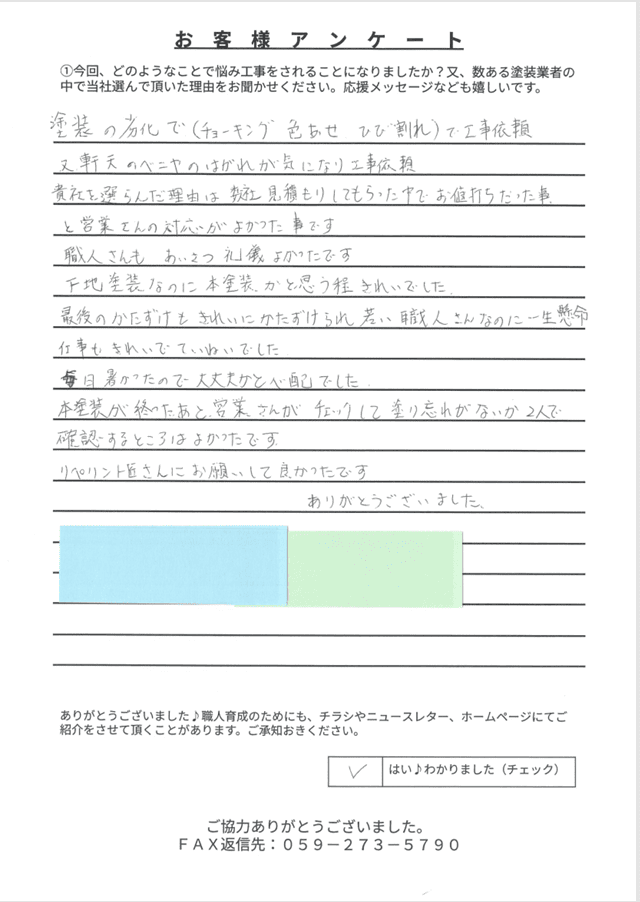 お客様アンケート
①今回、どのようなことで悩み工事をされることになりましたか？又、数ある塗装業者の
中で当社選んで頂いた理由をお聞かせください。応援メッセージなども嬉しいです。
塗装の劣化で(チョーキング 色あせ ひび割れ)で工事依頼
又軒天のベニヤのはがれが気になり工事依頼
貴社を選らんだ理由は数社見積もりしてもらった中でお値打ちだった事
と営業さんの対応がよかった事です
職人さんも あいさつ 礼儀よかったです
下地塗装なのに本塗装かと思う程きれいでした。
最後のかたずけもきれいにかたずけられ若い職人さんなのに一生懸命
仕事もきれいでていねいでした
毎日暑かったので大丈夫かと心配でした。
本塗装が終ったあと、営業さんがチェックして塗り忘れがないか2人で
確認するところはよかったです。
リペリント匠さんにお願いして良かったです
ありがとうございました。
ありがとうございました♪職人育成のためにも、チラシやニュースレター、ホームページにてご
紹介をさせて頂くことがあります。ご承知おきください。
✓ はい♪わかりました（チェック）
ご協力ありがとうございました。
ＦＡＸ返信先：０５９－２７３－５７９０